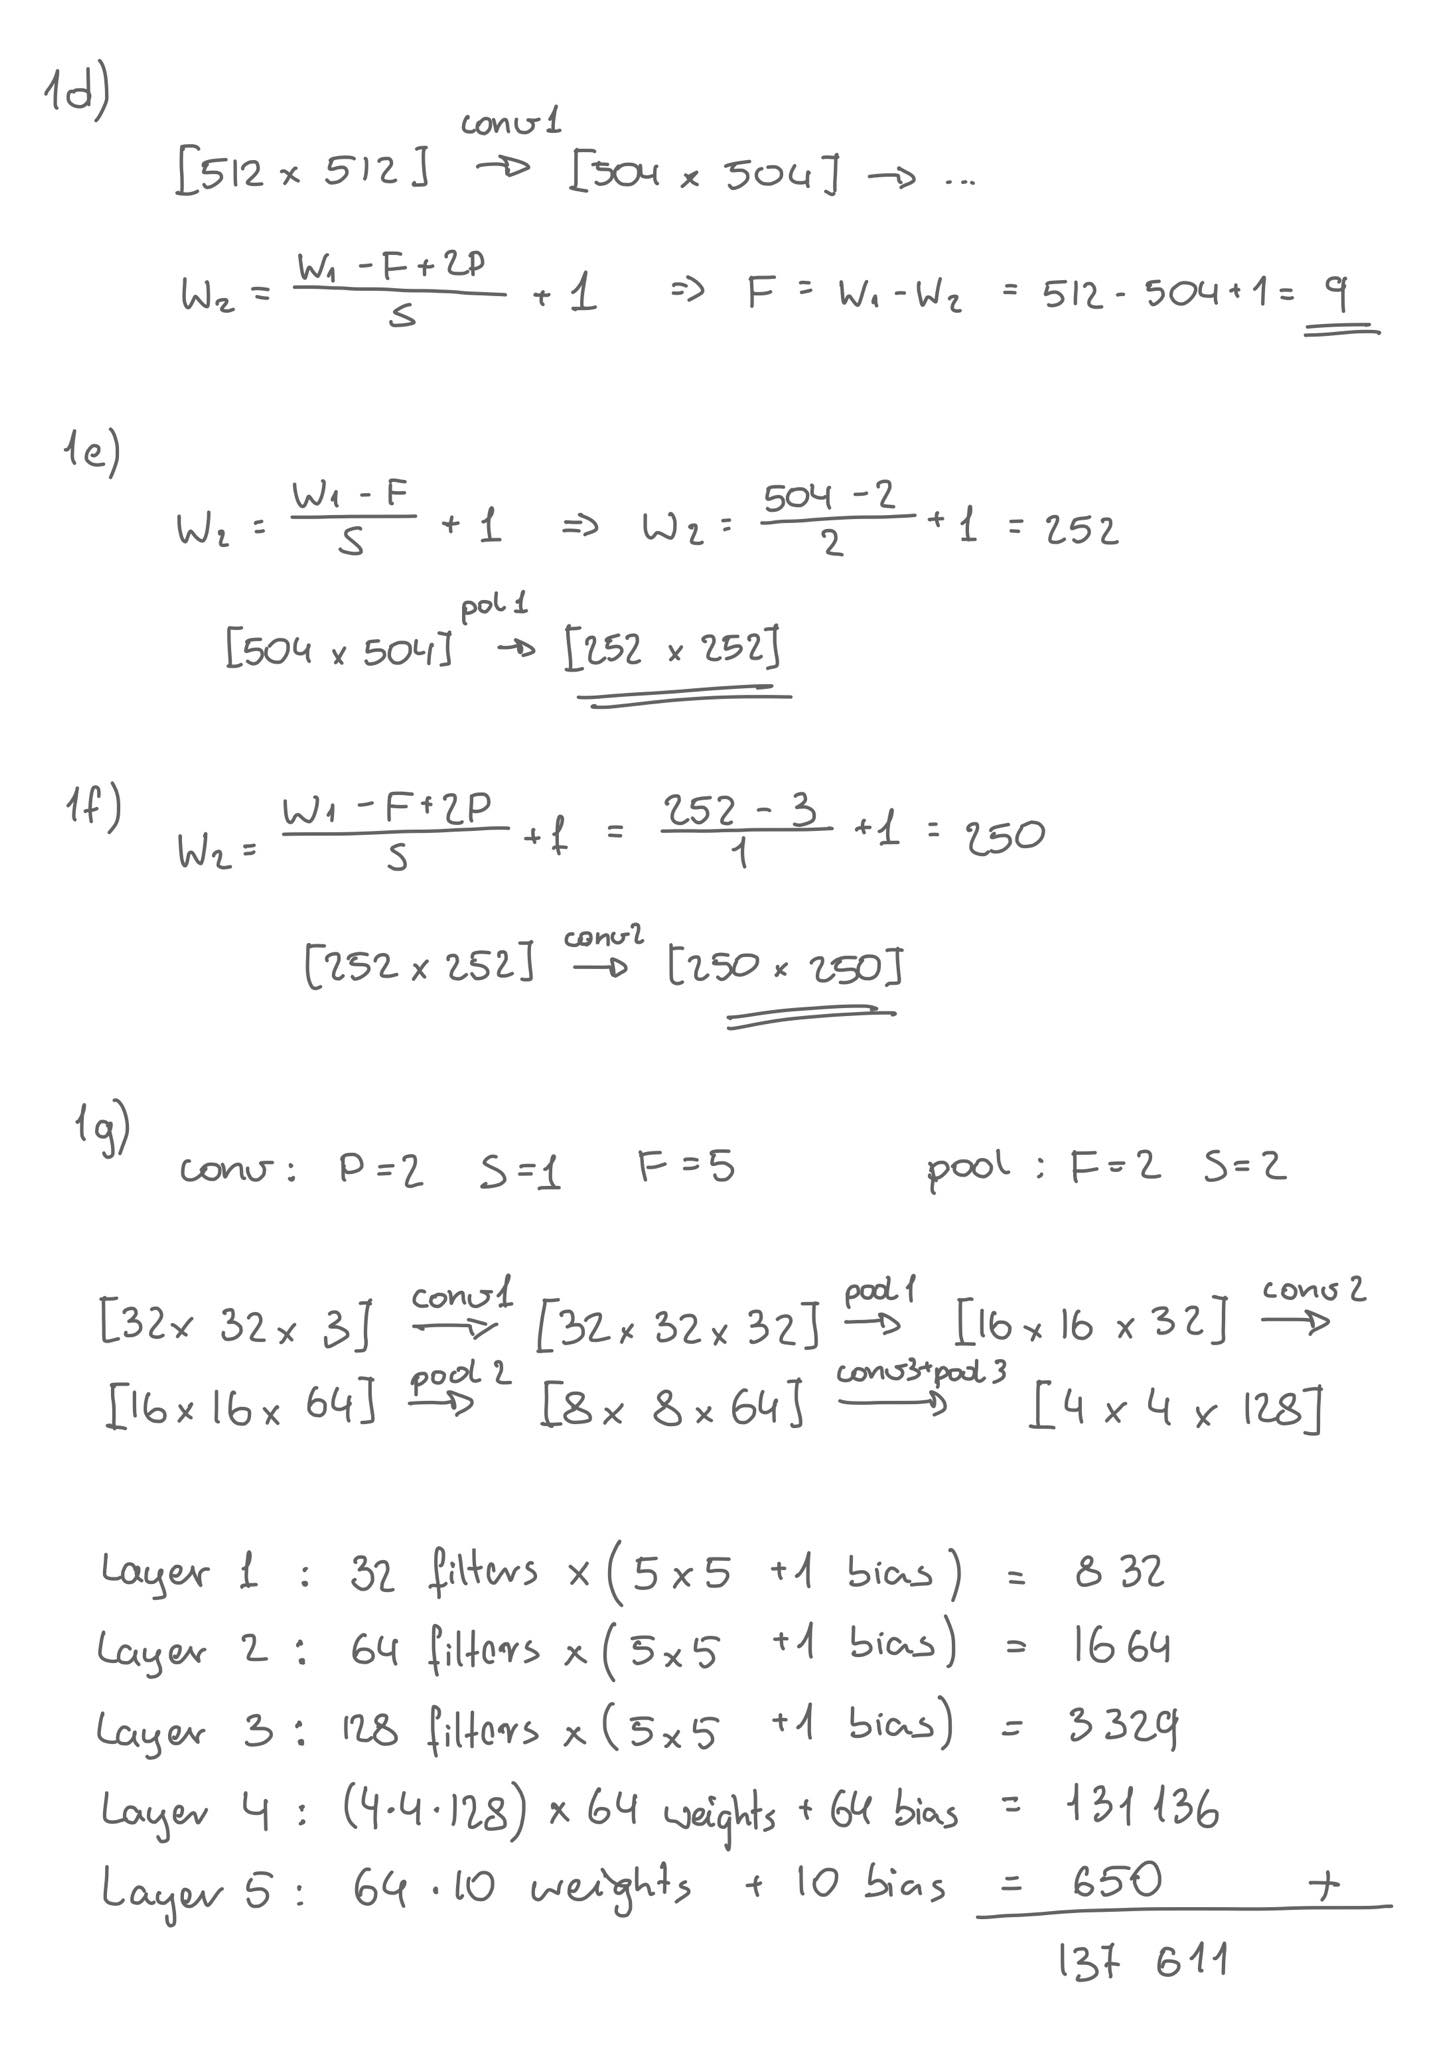 1d)
[512 x 512] conv1 → [504 x 504] → ...
W₂ = (W₁ - F + 2P)/S + 1 ⇒ F = W₁ - W₂ = 512 - 504 + 1 = 9
1e)
W₂ = (W₁ - F)/S + 1 ⇒ W₂ = (504 - 2)/2 + 1 = 252
[504 x 504] pol1 → [252 x 252]
1f)
W₂ = (W₁ - F + 2P)/S + 1 = (252 - 3)/1 + 1 = 250
[252 x 252] conv2 → [250 x 250]
1g)
conv: P=2 S=1 F=5 pool: F=2 S=2
[32 x 32 x 3] conv1 → [32 x 32 x 32] pool1 → [16 x 16 x 32] conv2 →
[16 x 16 x 64] pool2 → [8 x 8 x 64] conv3+pool3 → [4 x 4 x 128]
Layer 1: 32 filters x (5x5 +1 bias) = 832
Layer 2: 64 filters x (5x5 +1 bias) = 1664
Layer 3: 128 filters x (5x5 +1 bias) = 3329
Layer 4: (4·4·128) x 64 weights + 64 bias = 131 136
Layer 5: 64·10 weights + 10 bias = 650 +
137 611